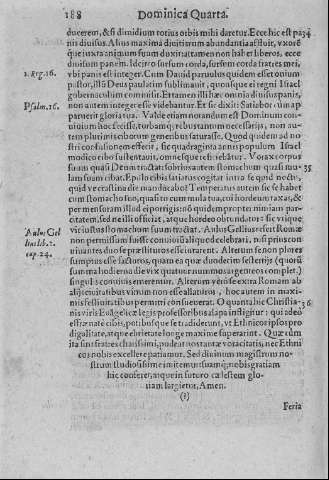 188 Dominica Quarta.
ducerem, & si dimidium totius orbis mihi daretur. Ecce hic est panis 34
nis diuisus. Alius maxima diuitiarum abundantia est fuit, vxorē
que iuxta animum suum duxit: attamen non habet liberos. ecce
diuisum panem. Idcirco sursum corda, sursum corda fratres mei,
1. Reg. 16. vbi panis est integer. Cum Dauid paruulus quidem esset ouium
pastor, illū Deus paulatim sublimauit, quousque ei regni Israel
gubernaculum commisit. Et tamen illi hæc omnia diuisus panis,
Psalm. 16. non autem integer esse videbantur. Et sic dixit: Satiabor cum apparuerit
gloria tua. Valde etiam notandum est Dominum conuiuium
hoc fecisse, turbamque rebus tantum necessariis, non autem
plurimis ciborum generibus satiasse. Quod quidem ad nostri
confusionem effecit, sic quadraginta annis populum Israel
modico cibo sustentauit, omnesque refiniebātur. Vorax corpus
suum quasi Deum tractat: sobrius autem stomachum quasi mulam 35
suam cibat. Epulo cibis satiatus cogitat intra se quid nocte,
quid ve crastina die manducabo? Temperatus autem sic se habet
cum stomacho suo, quasi is cum mula tua, cui hordeum taxas, &
per mensuram illud ei porrigis: nō quidem propter nimiam paritatem,
sed ne illi officiat, atque hordeo obtundatur: sic vtique
Aulus Gellius lib. 2. cap. 24. virtuosus stomachum suum tractat. Aulus Gellius refert Romæ
non permissum fuisse conuiuiū aliquod celebrari, nisi prius conuiuantes
duo se prestituros esse iurarent. Alterum se non plures
sumptus esse facturos, quam ea quæ duodecim sestertijs (quorū
summa hodierno die vix quatuor nummos argenteos complet.)
singulis conuiuis emerentur. Alterum verò se extra Romam ab
aliquietiùs vinum non esse allaturos, hoc autem in maximis
festiuitatibus permitti consueuerat. O quanta hic Christianis 36
viris Euāgelicæ legis professoribus alapa infligitur: qui adeo
effrænate cibis, potibusque se tradiderunt, vt Ethnicos ipsos prodigalitate,
atque ebrietate longe maxime superarint. Quæ cùm
ita sint fratres charissimi, pudeat nos tantæ voracitatis, nec Ethnicos
nobis excellere patiamur. Sed diuinum magistrum nostrum
studiosissime imitemur: vt quam nobis gratiam
hic conferet, atque in futuro cælestem gloriam
largietur, Amen.
(?)
Feria